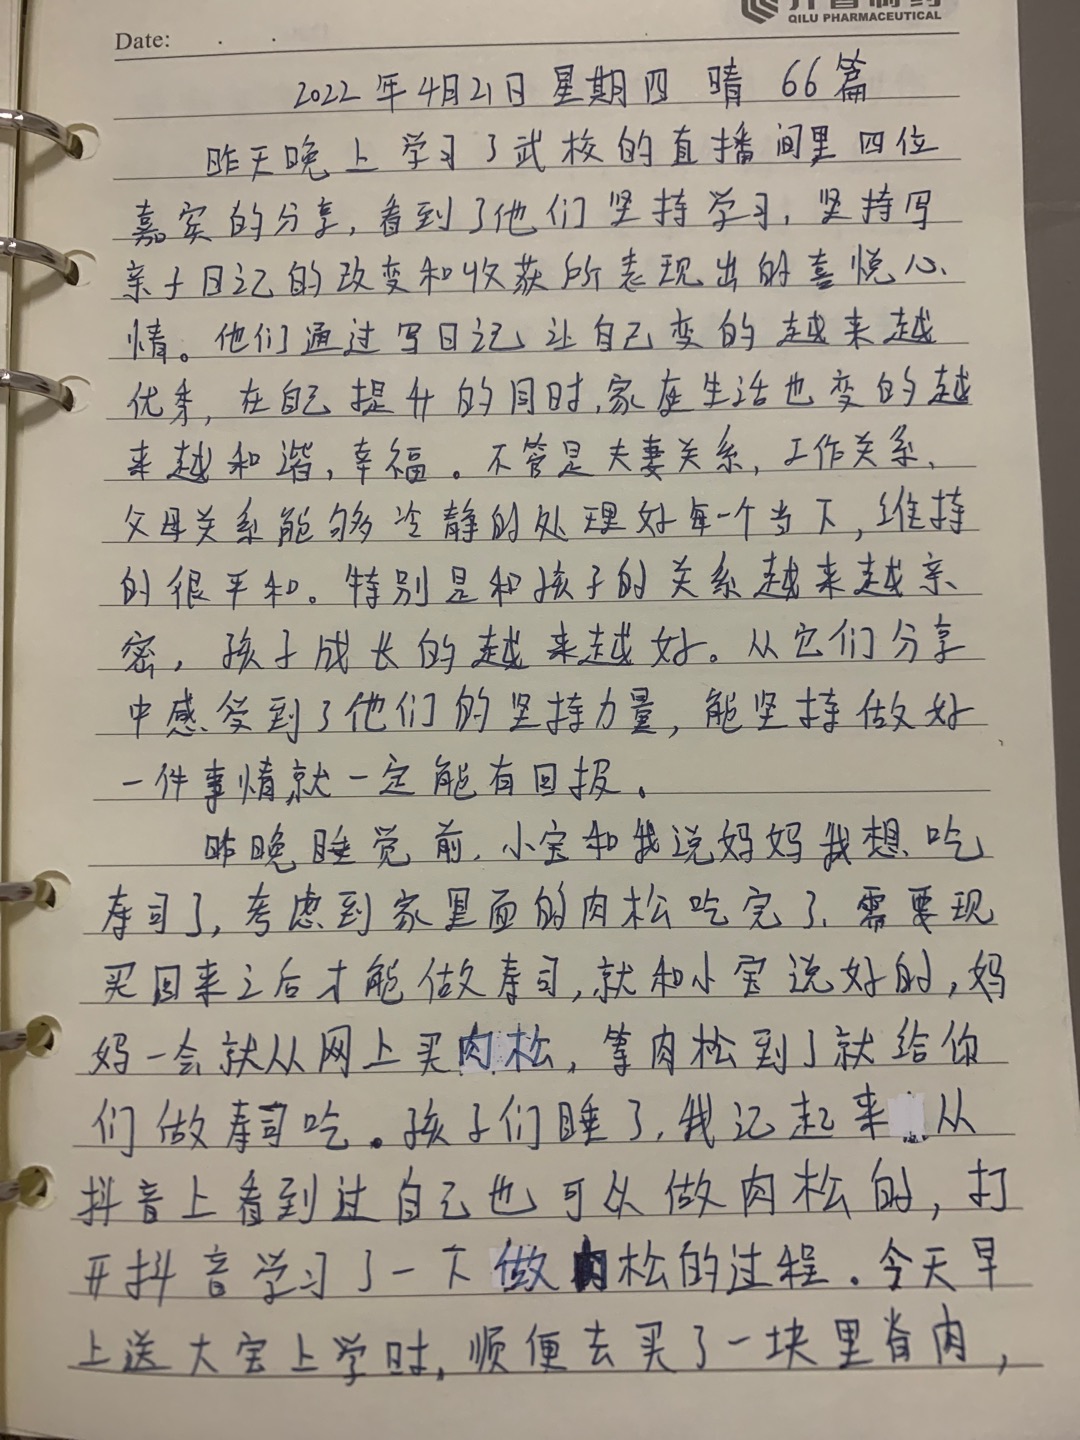 齐鲁制药
QILU PHARMACEUTICAL
Date: . .
2022年4月21日 星期四 晴 66篇
昨天晚上学习了武校的直播间里四位
嘉宾的分享,看到了他们坚持学习,坚持写
亲子日记的改变和收获所表现出的喜悦心
情。他们通过写日记让自己变的越来越
优秀,在自己提升的同时,家庭生活也变的越
来越和谐,幸福。不管是夫妻关系、工作关系、
父母关系能够冷静的处理好每一个当下,维持
的很平和。特别是和孩子的关系越来越亲
密,孩子成长的越来越好。从它们分享
中感受到了他们的坚持力量,能坚持做好
一件事情就一定能有回报。
昨晚睡觉前,小宝和我说妈妈我想吃
寿司了,考虑到家里面的肉松吃完了、需要现
买回来之后才能做寿司,就和小宝说好的,妈
妈一会就从网上买肉松,等肉松到了就给你
们做寿司吃。孩子们睡了,我记起来从
抖音上看到过自己也可以做肉松的,打
开抖音学习了一下做肉松的过程。今天早
上送大宝上学时,顺便去买了一块里脊肉,